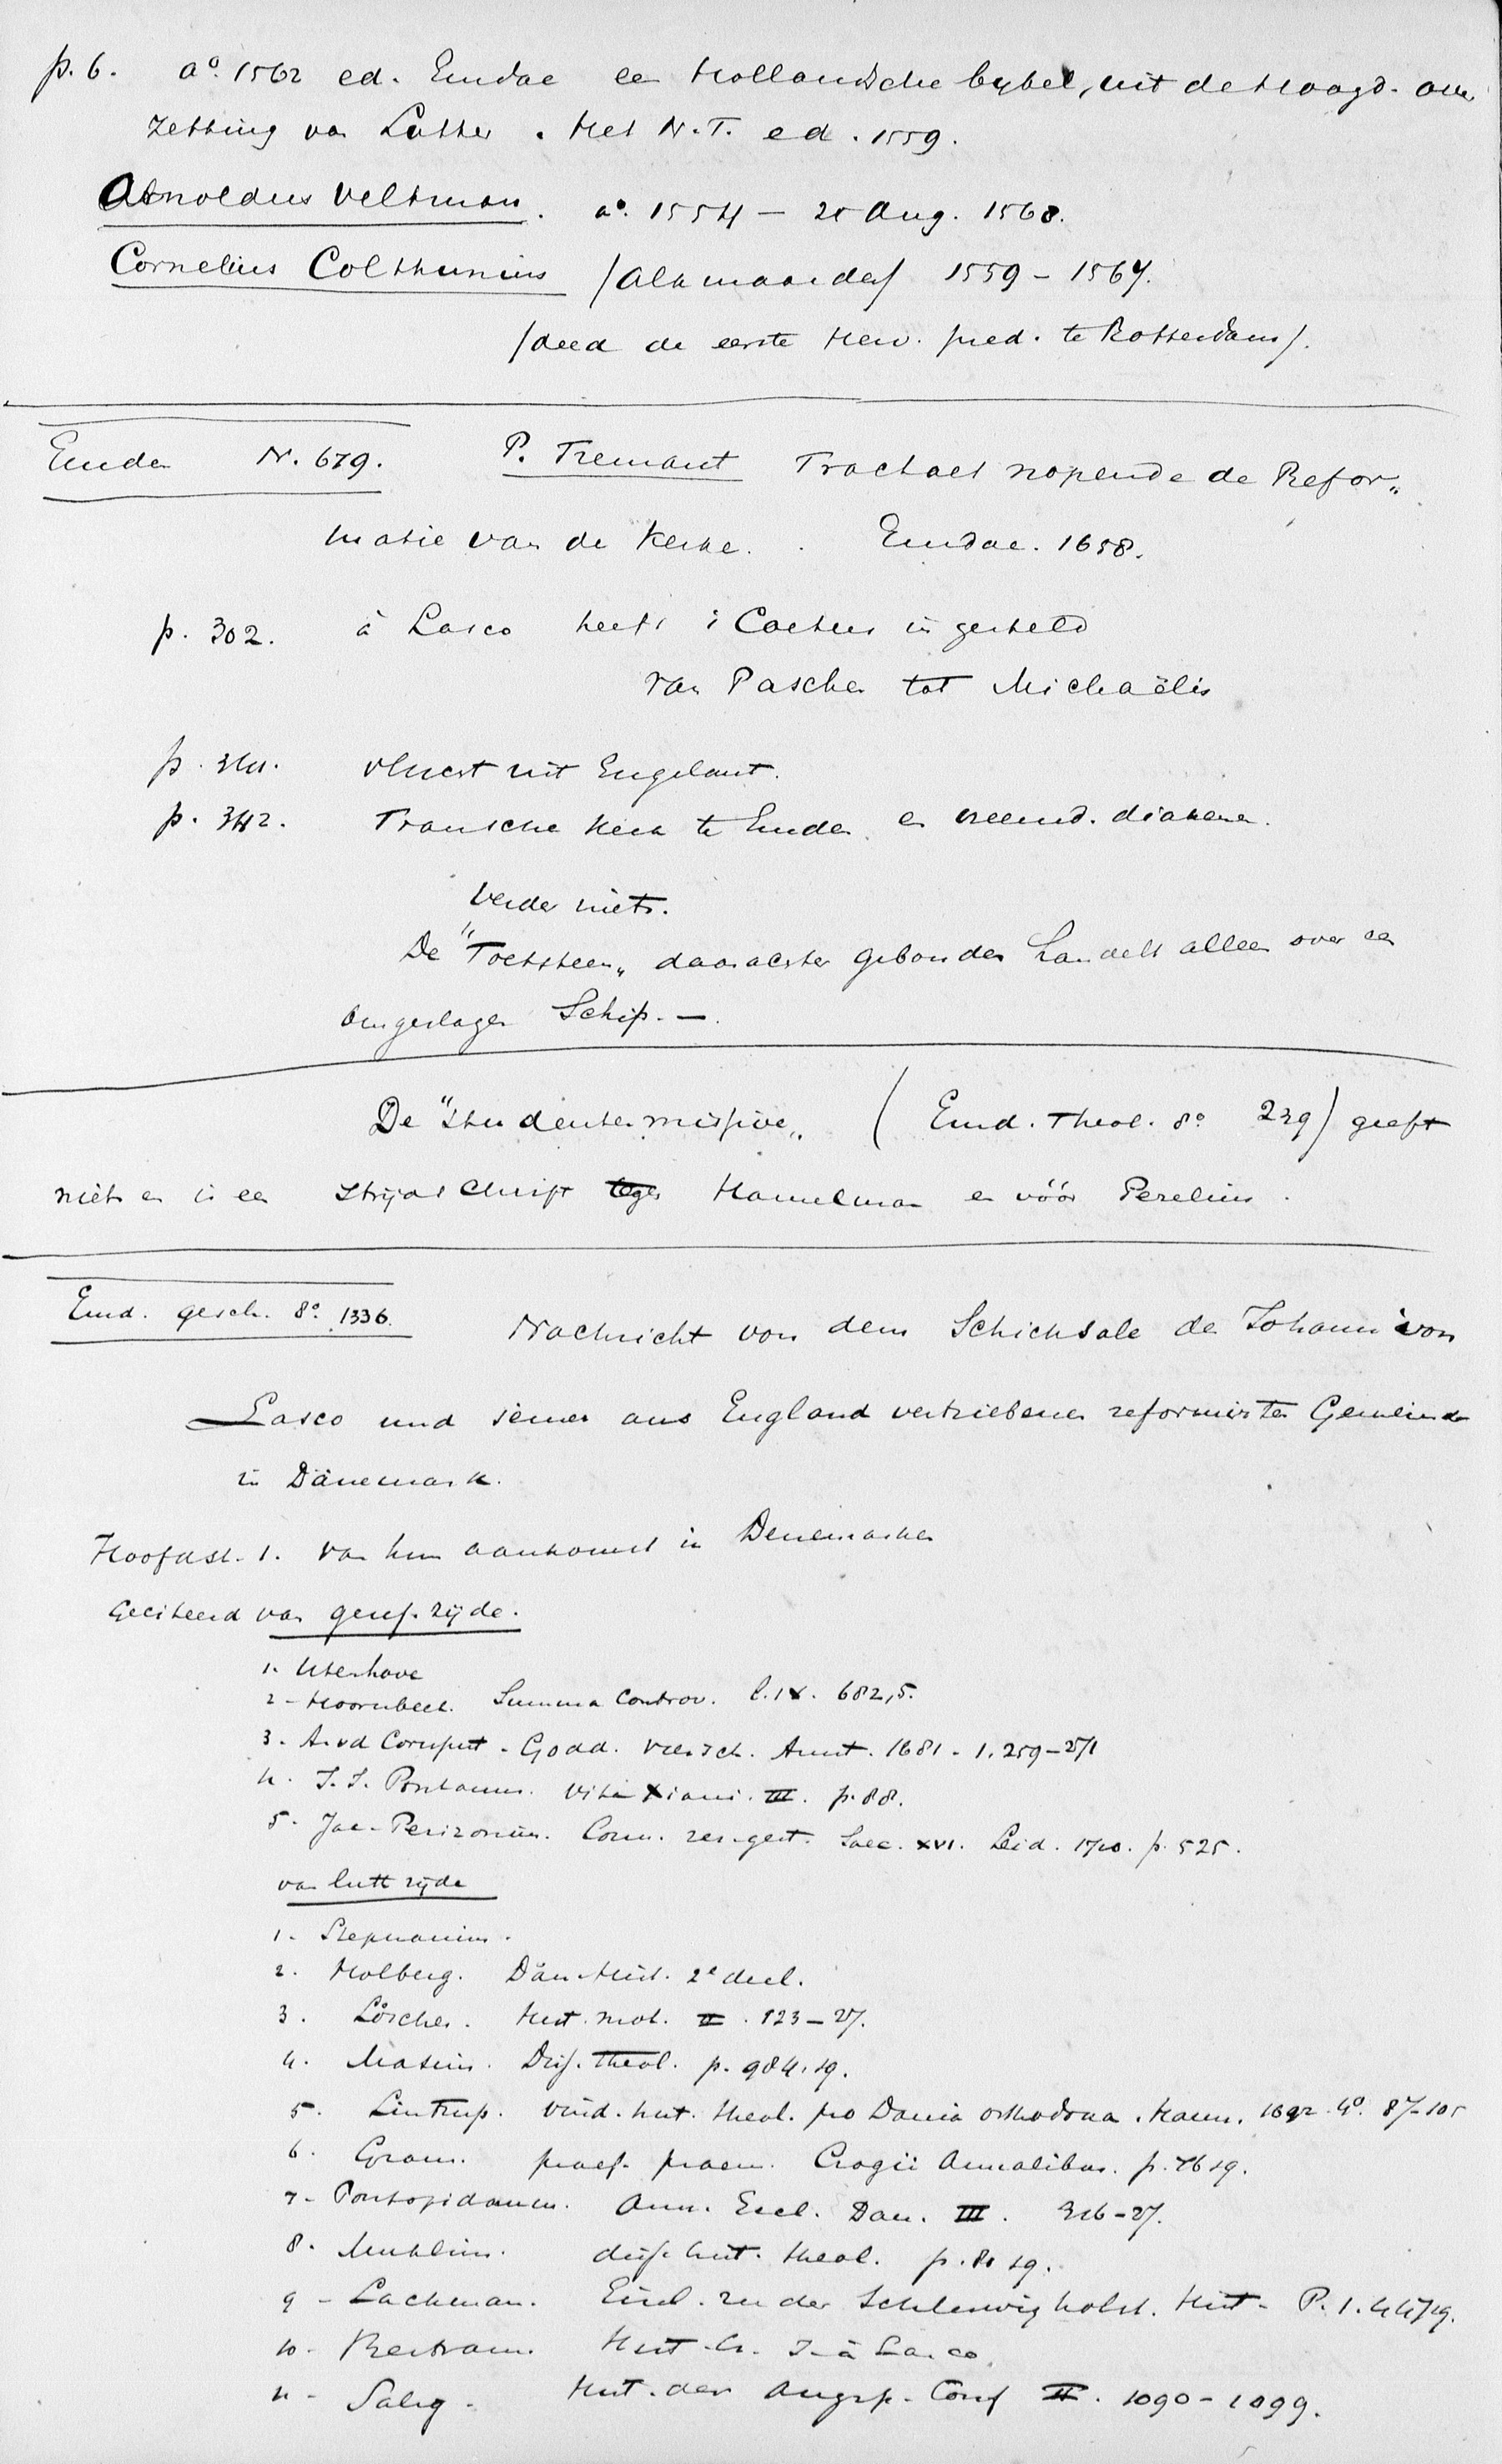 p. 6. aº. 1562 ed. Emdae een Hollandsche bybel, uit de Hoogd. over
zetting van Luther. Het N.T. ed. 1559.
Arnoldus Veltman. aº. 1554 – 25 Aug. 1568.
Cornelius Colthunius /Alkmaarder/ 1559 – 1567.
/deed de eerste Herv. pred. te Rotterdam/.
Emden N. 679. P. Tremant Tractaet nopende de Refor„
matie van de Kerke. Emdae. 1658.
p. 302. à Lasco heeft 't Coetus ingesteld
van Paschen tot Michaëlis
p. 341. vlucht uit Engelant.
p. 342. Fransche Kerk te Emden en vreemd. diakenen.
Verder niets.
De "Toetssteen„ daarachter gebonden handelt alleen over een
omgeslagen Schip. —.
De "Studentenmissive„ (Emd. Theol. 8º 239) geeft
niets en is een strijdschrift tegen Hamelman en vóór Pezelius.
Emd. gesch. 8º. 1336. Nachricht von dem Schicksale de Johann von
Lasco und seiner aus England vertriebenen reformirten Gemeinde
in Dänemark.
Hoofdst. 1. van hun aankomst in Denemarken
Geciteerd van geref. zijde.
1. Utenhove
2 – Hoornbeek. Summa Controv. l. IX. 682,5.
3. A. vd Corruput. Godd. Viersch. Amst. 1681. 1. 259–271
4. J. J. Pontanus. Vita Xiani. III. p. 88.
5. Jac. Perizonius. Com. rer. gest. Saec. XVI. Leid. 1710. p. 525.
van luth zijde
1. Stephanius.
2. Holberg. Dän. Hist. 2e deel.
3. Löscher. Hist. mot. II. 123–27.
4. Masius. Diss. Theol. p. 984. sq.
5. Lintrup. Vind. hist. theol. pro Dania orthodoxa. Haun. 1692. 4º. 87–105
6. Gram. praef. praem. Cragii Annalibus. p. 76 sq.
7. Pontoppidanum. Ann. Eccl. Dan. III. 316–27.
8. Muhlius. diss. hist. theol. p. 81 sq.
9 – Lachman. Einl. zu der Schleswigholst. Hist. P. 1. 447 sq.
10 – Bertram. Hist. Cr. J. à Lasco.
11 – Salig. Hist. der Augsp. Conf II. 1090–1099.